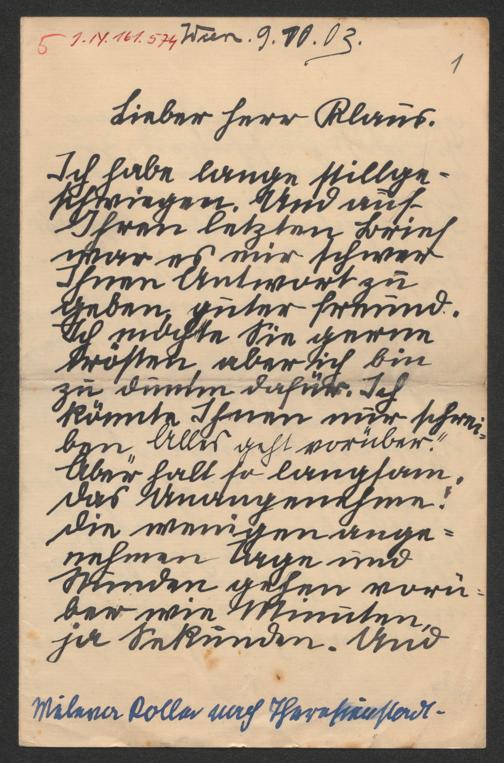 5 I.N. 161.574 Wien. 9. 10. 03.
1
Lieber Herr Klaus.
Ich habe lange stillge-
schwiegen. Und auf
Ihren letzten Brief
war es mir schwer
Ihnen Antwort zu
geben, guter Freund.
Ich möchte Sie gerne
trösten, aber ich bin
zu dumm dafür. Ich
könnte Ihnen nur schrei-
ben „Alles geht vorüber."
Aber halt so langsam,
das Unangenehme!
die wenigen ange-
nehmen Tage und
Stunden gehen vorü-
ber wie Minuten,
ja Sekunden. Und
nach Theresienstadt-